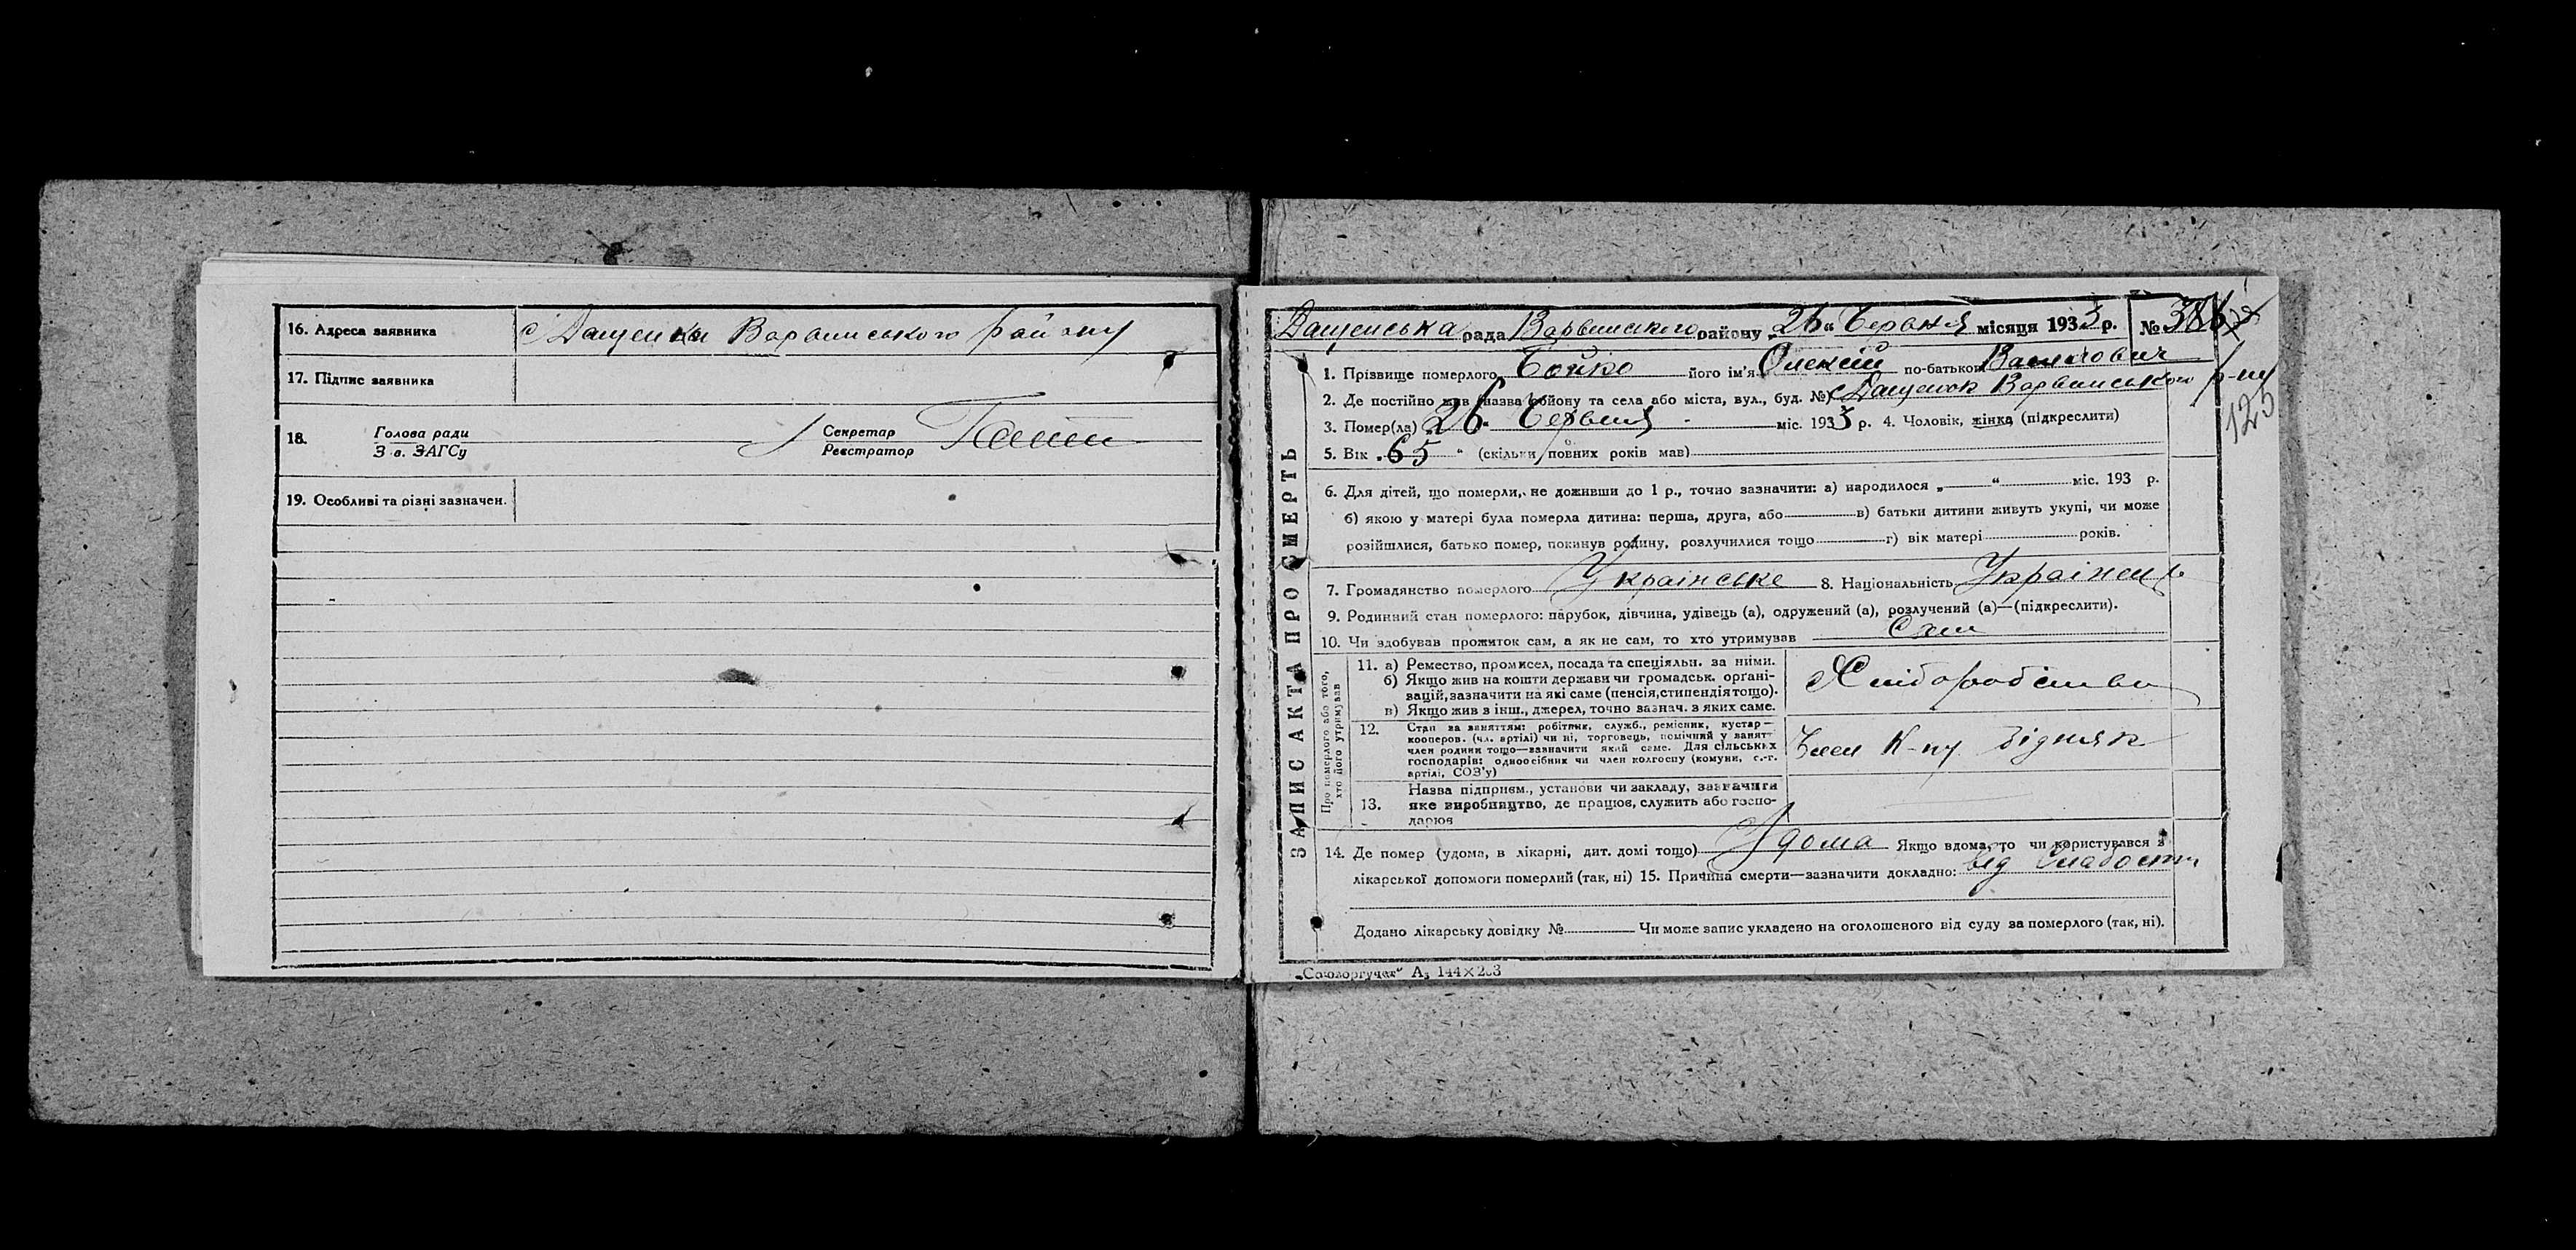 16. Адреса заявника с Дащенки Варвинського району
17. Підпис заявника
18. Голова ради Секретар
З в. ЗАГСу Реєстратор
19. Особливі та різні зазначен.
Дащенська рада Варвинського району „26“ Червня місяця 1933 р. № 386
1. Прізвище померлого Бойко його ім'я Олексій по-батькові
2. Де постійно жив (назва району та села або міста, вул., буд. №) с Дащенок Варвинського р-ну
125
3. Помер(ла) „26“ Червня міс. 1933 р. 4. Чоловік, жінка (підкреслити)
5. Вік „65“ (скільки повних років мав)
6. Для дітей, що померли, не доживши до 1 р., точно зазначити: а) народилося „ “ міс. 193 р.
б) якою у матері була померла дитина: перша, друга, або в) батьки дитини живуть укупі, чи може
розійшлися, батько помер, покинув родину, розлучилися тощо г) вік матері років.
7. Громадянство померлого Українське 8. Національність Украінець
9. Родинний стан померлого: парубок, дівчина, удівець (а), одружений (а), розлучений (а)—(підкреслити).
10. Чи здобував прожиток сам, а як не сам, то хто утримував Сам
ЗАПИС АКТА ПРО СМЕРТЬ
Про померлого або того,
хто його утримував
11. а) Ремество, промисел, посада та спеціяльн. за ними.
б) Якщо жив на кошти держави чи громадськ. орґані-
зацій, зазначити на які саме (пенсія, стипендія тощо).
в) Якщо жив з інш., джерел, точно зазнач. з яких саме.
Хліборобство
12. Стан за заняттям: робітник, служб., ремісник, кустар—
кооперов. (чл. артілі) чи ні, торговець, помічний у занят
член родини тощо—зазначити який саме. Для сільських
господарів: одноосібник чи член колгоспу (комуни, с.-г.
артілі, СОЗ'у)
Член К-пу бідняк
13. Назва підприєм., установи чи закладу, зазначити
яке виробництво, де працює, служить або госпо-
дарює
14. Де помер (удома, в лікарні, дит. домі тощо) Удома Якщо вдома, то чи користувався з
лікарської допомоги померлий (так, ні) 15. Причина смерти—зазначити докладно: від слабости
Додано лікарську довідку № Чи може запис укладено на оголошеного від суду за померлого (так, ні).
„Союзоргучот“ А₅ 144×203